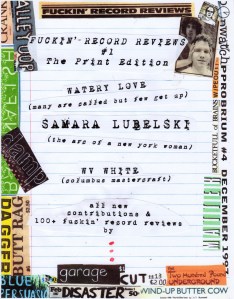 FUCKIN' RECORD REVIEWS
FUCKIN' RECORD REVIEWS
#1
The Print Edition
WATERY LOVE
(many are called but few get up)
SAMARA LUBELSKI
(the arc of a new york woman)
WV WHITE
(columbus mastercraft)
all new
contributions &
100+ fuckin' record reviews
by
ALLEY OOP
swamp
DAGGER
BUTT RAG
OPPROBRIUM #4 DECEMBER 1997
garage
CUT
#13
$2.00
The Two Hundred Pound
UNDERGROUND
DISASTER
50
WIND-UP BUTTER COW